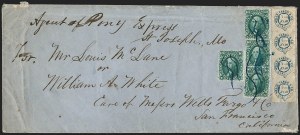 Agent of Pony Express
St Joseph, Mo
For Mr Louis McLane
or
William A. White
Care of Messrs Wells Fargo & Co
San Francisco
California